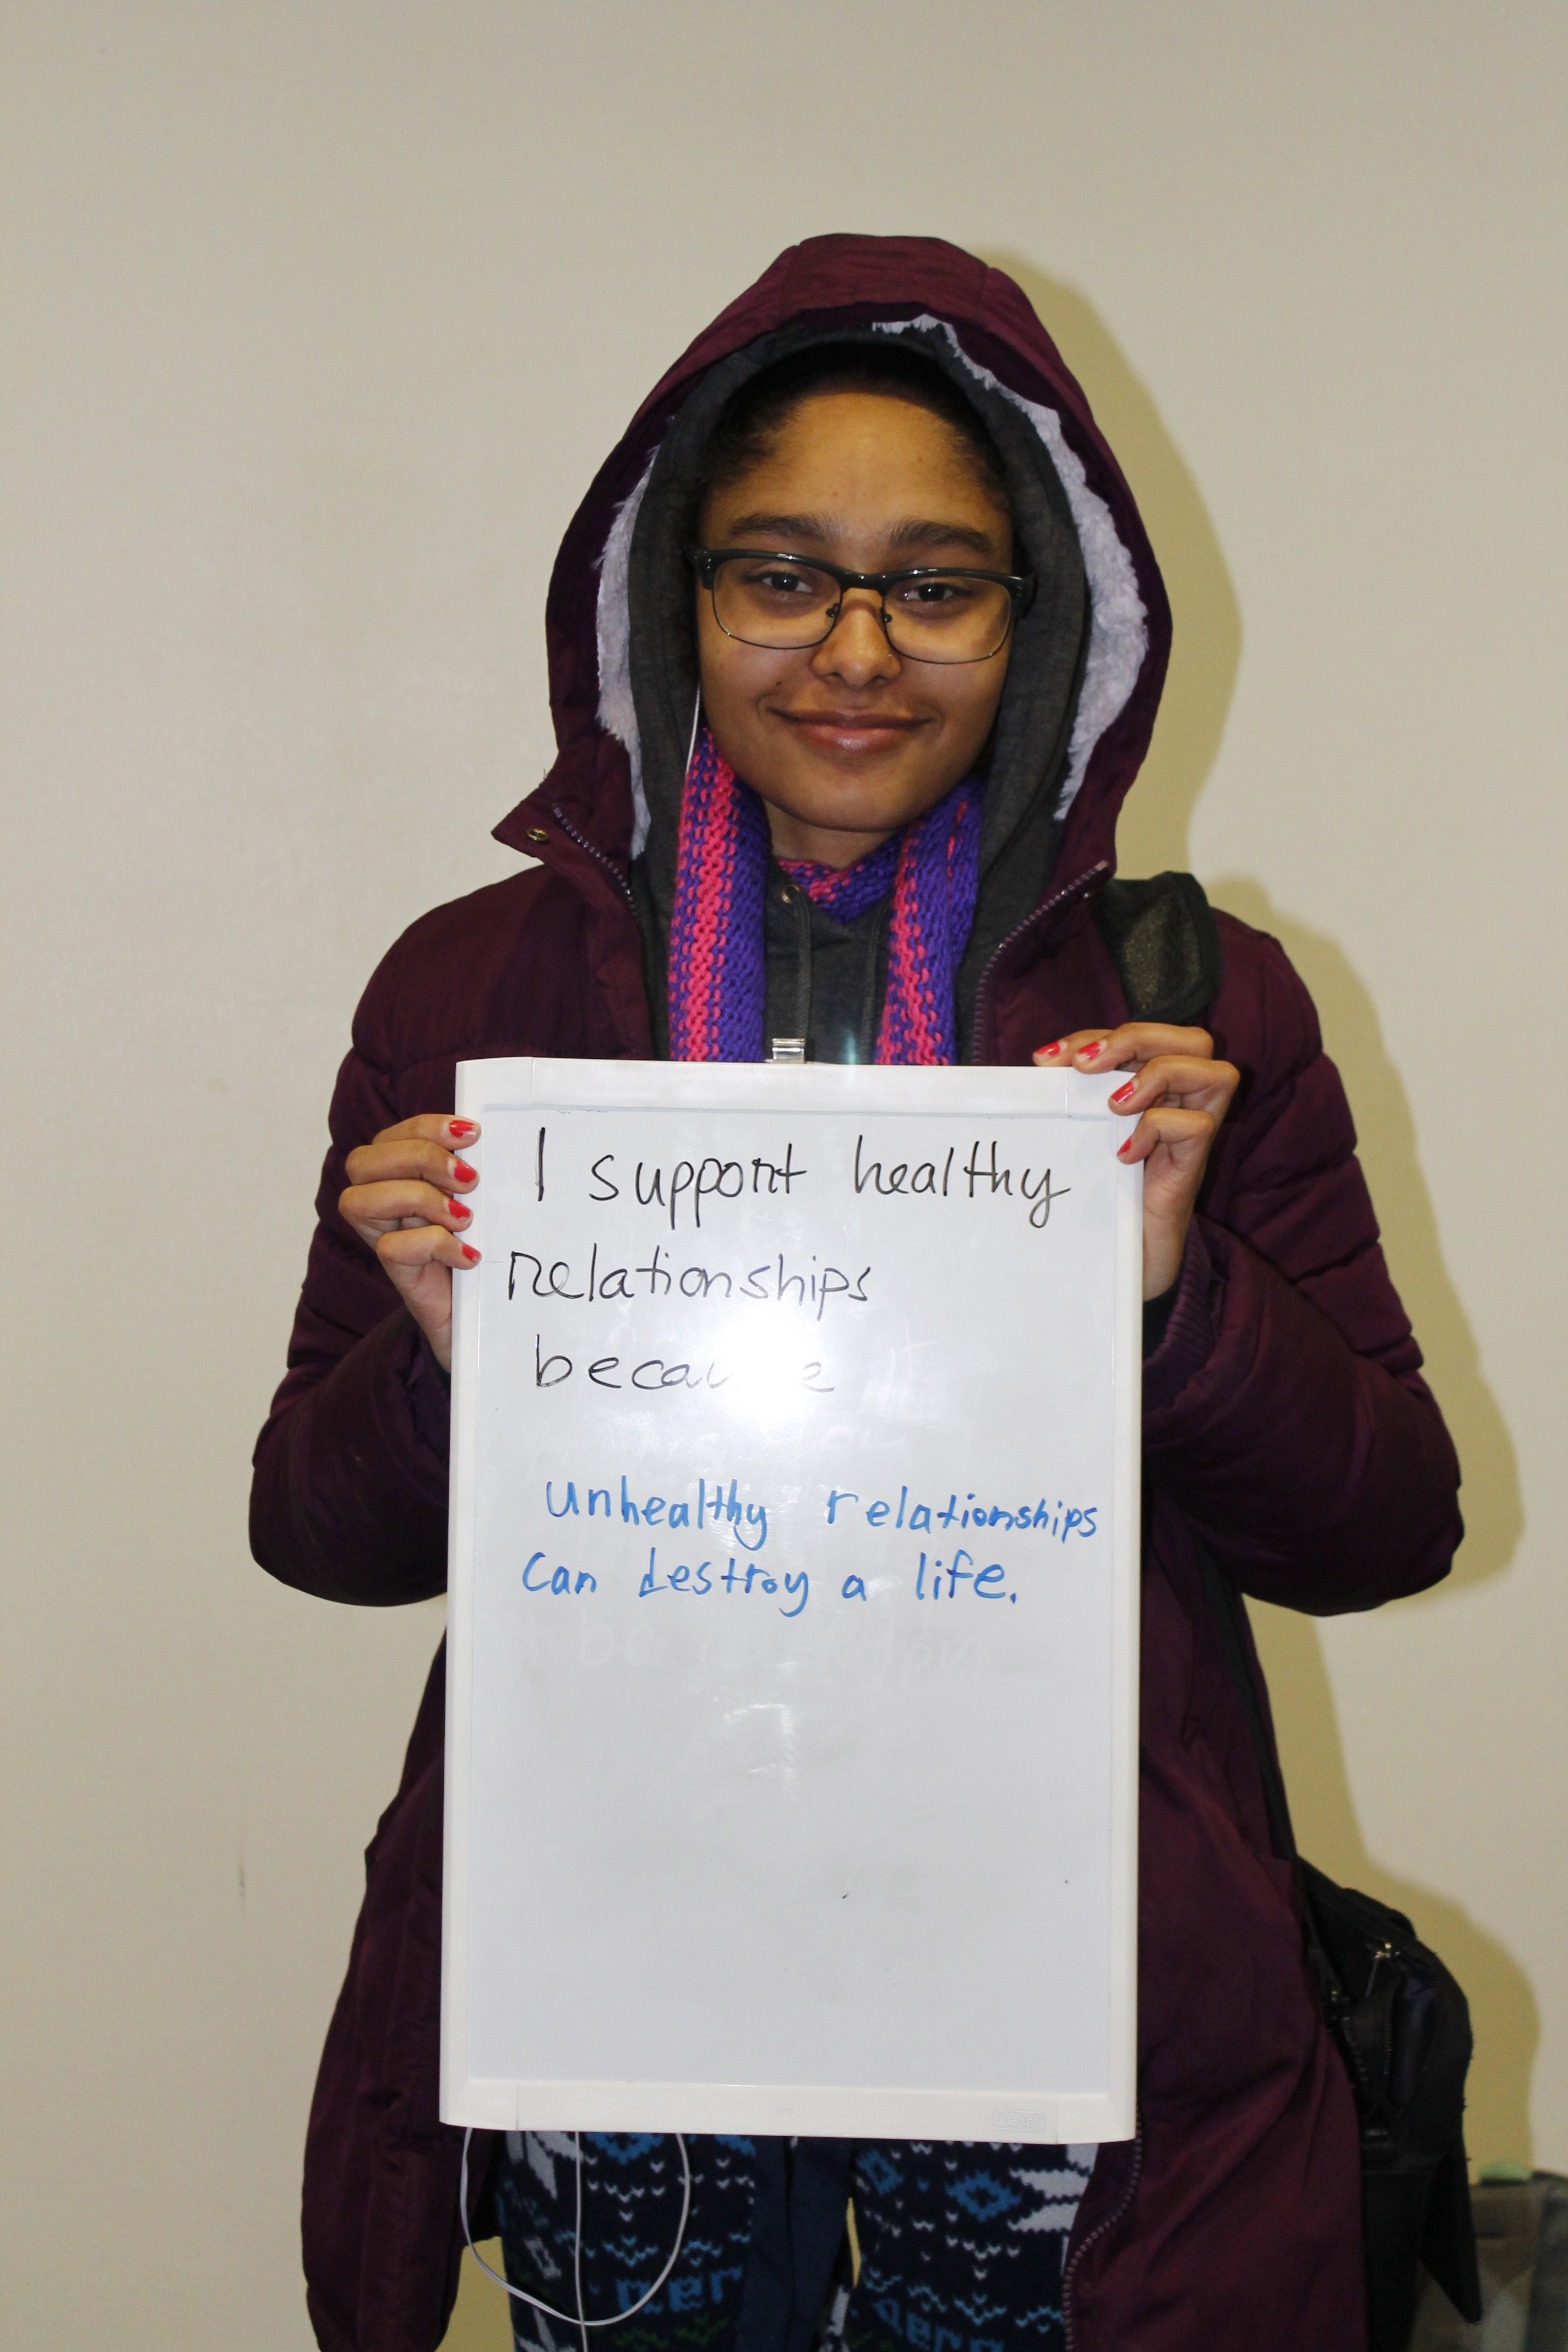 I support healthy
relationships
because
unhealthy relationships
can destroy a life.